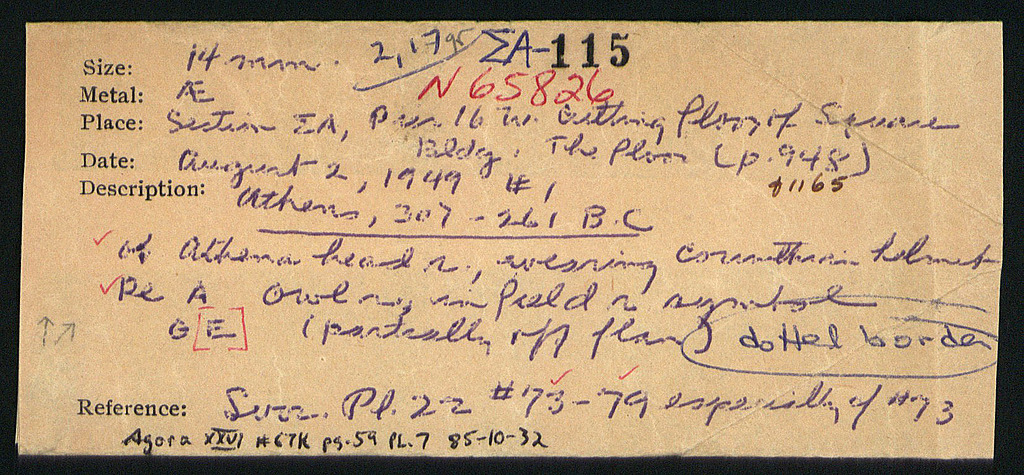 Size: 14 mm. 2,179 ΣA-115
Metal: Æ N65826
Place: Section ΣA, Pier 16 W. Cutting Floor of Square
Bldg. The Floor (p. 948)
Date: August 2, 1949 #1 #1165
Description: Athens, 307-261 B.C
Ob Athena head r., wearing corinthian helmet
Re A Owl r., in field r symbol
Θ[E] (partially off flan) dotted border
Reference: Svor. Pl. 22 #73-79 especially cf #73
Agora XXVI #67K pg.59 PL.7 85-10-32